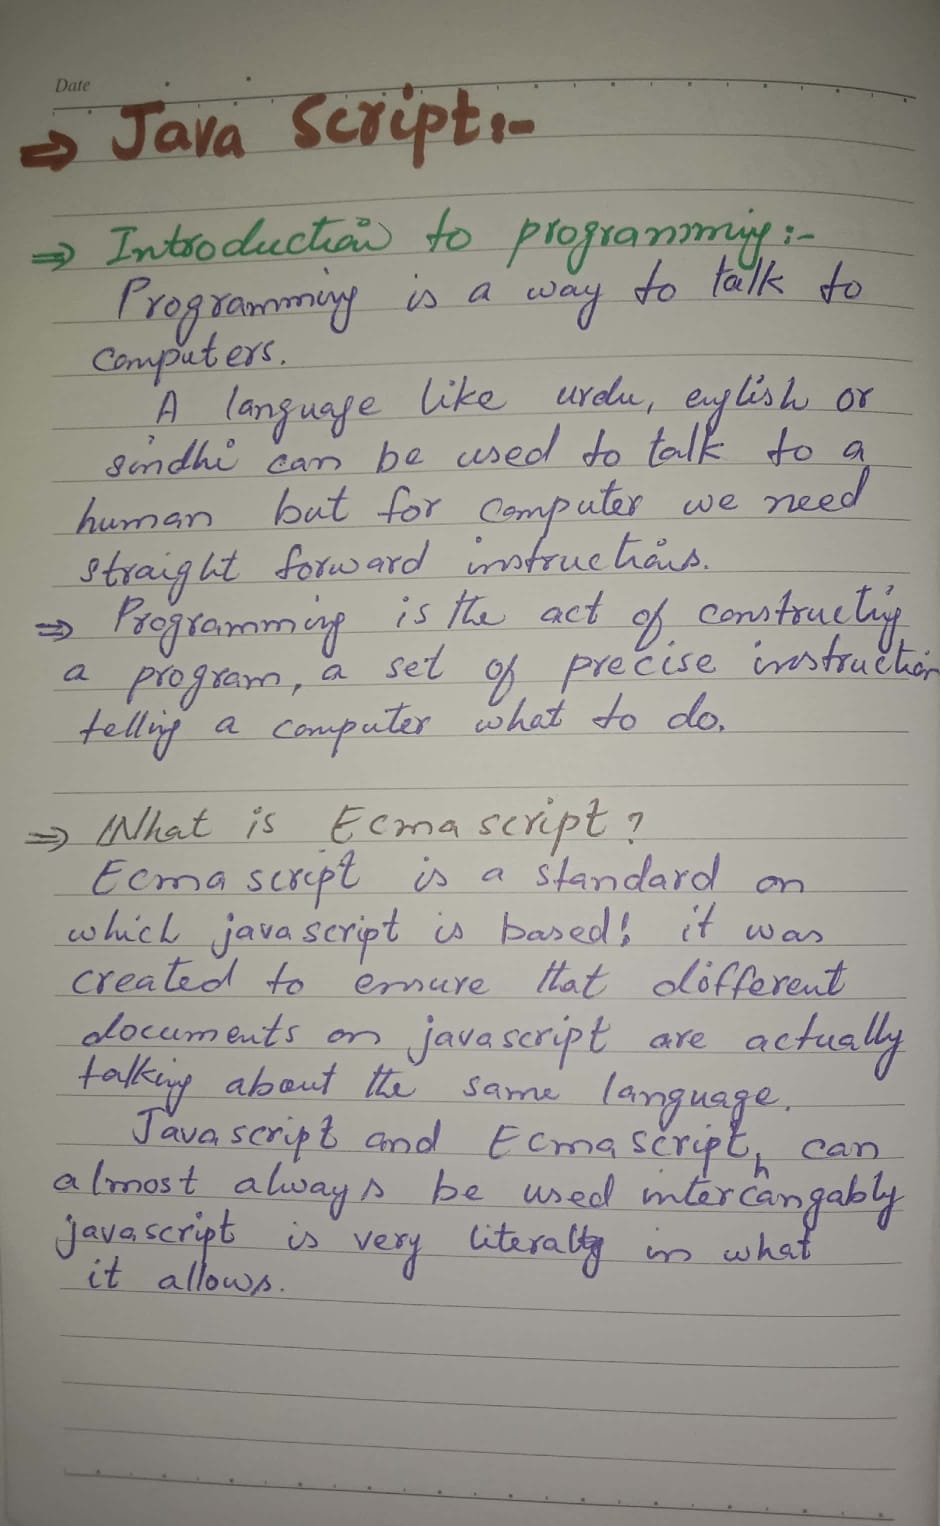 Date
⇒ Java Script:-
⇒ Introduction to programming:-
Programming is a way to talk to
computers.
A language like urdu, english or
sindhi can be used to talk to a
human but for computer we need
straight forward instructions.
⇒ Programming is the act of constructing
a program, a set of precise instruction
telling a computer what to do.
⇒ What is Ecma script?
Ecma script is a standard on
which java script is based! it was
created to ensure that different
documents on javascript are actually
talking about the same language.
Java script and Ecma script, can
almost always be used intercahngably
javascript is very literally in what
it allows.